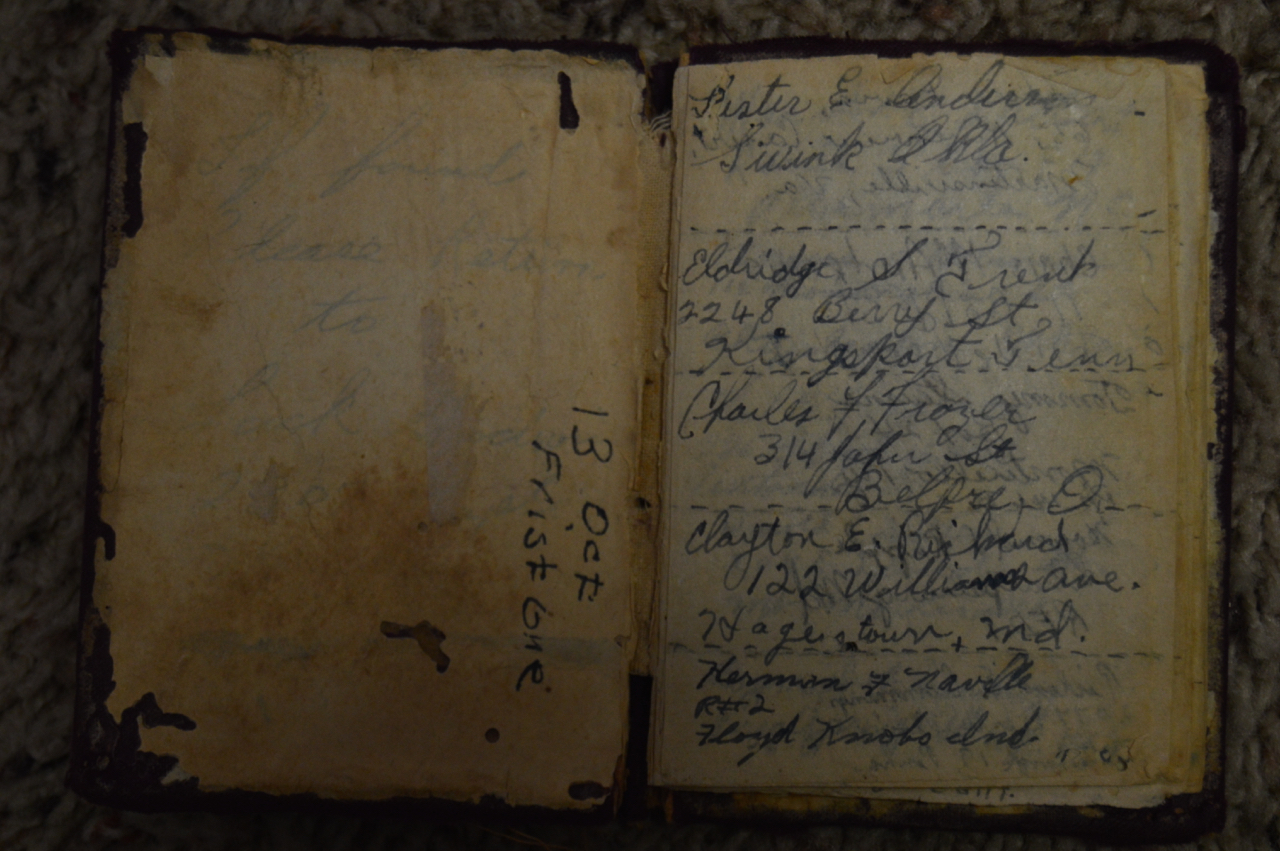 If found
Please Return
to
13 Oct
Frist one
Lester E. Anderson
Swink Okla.
Eldridge S Trent
2248 Berry St
Kingsport Tenn
Charles F Frozer
314 John St
Belpre, O
Clayton E. Richard
122 Williams ave.
Hagerstown, Md.
Herman F Naville
R#2
Floyd Knobs Ind.